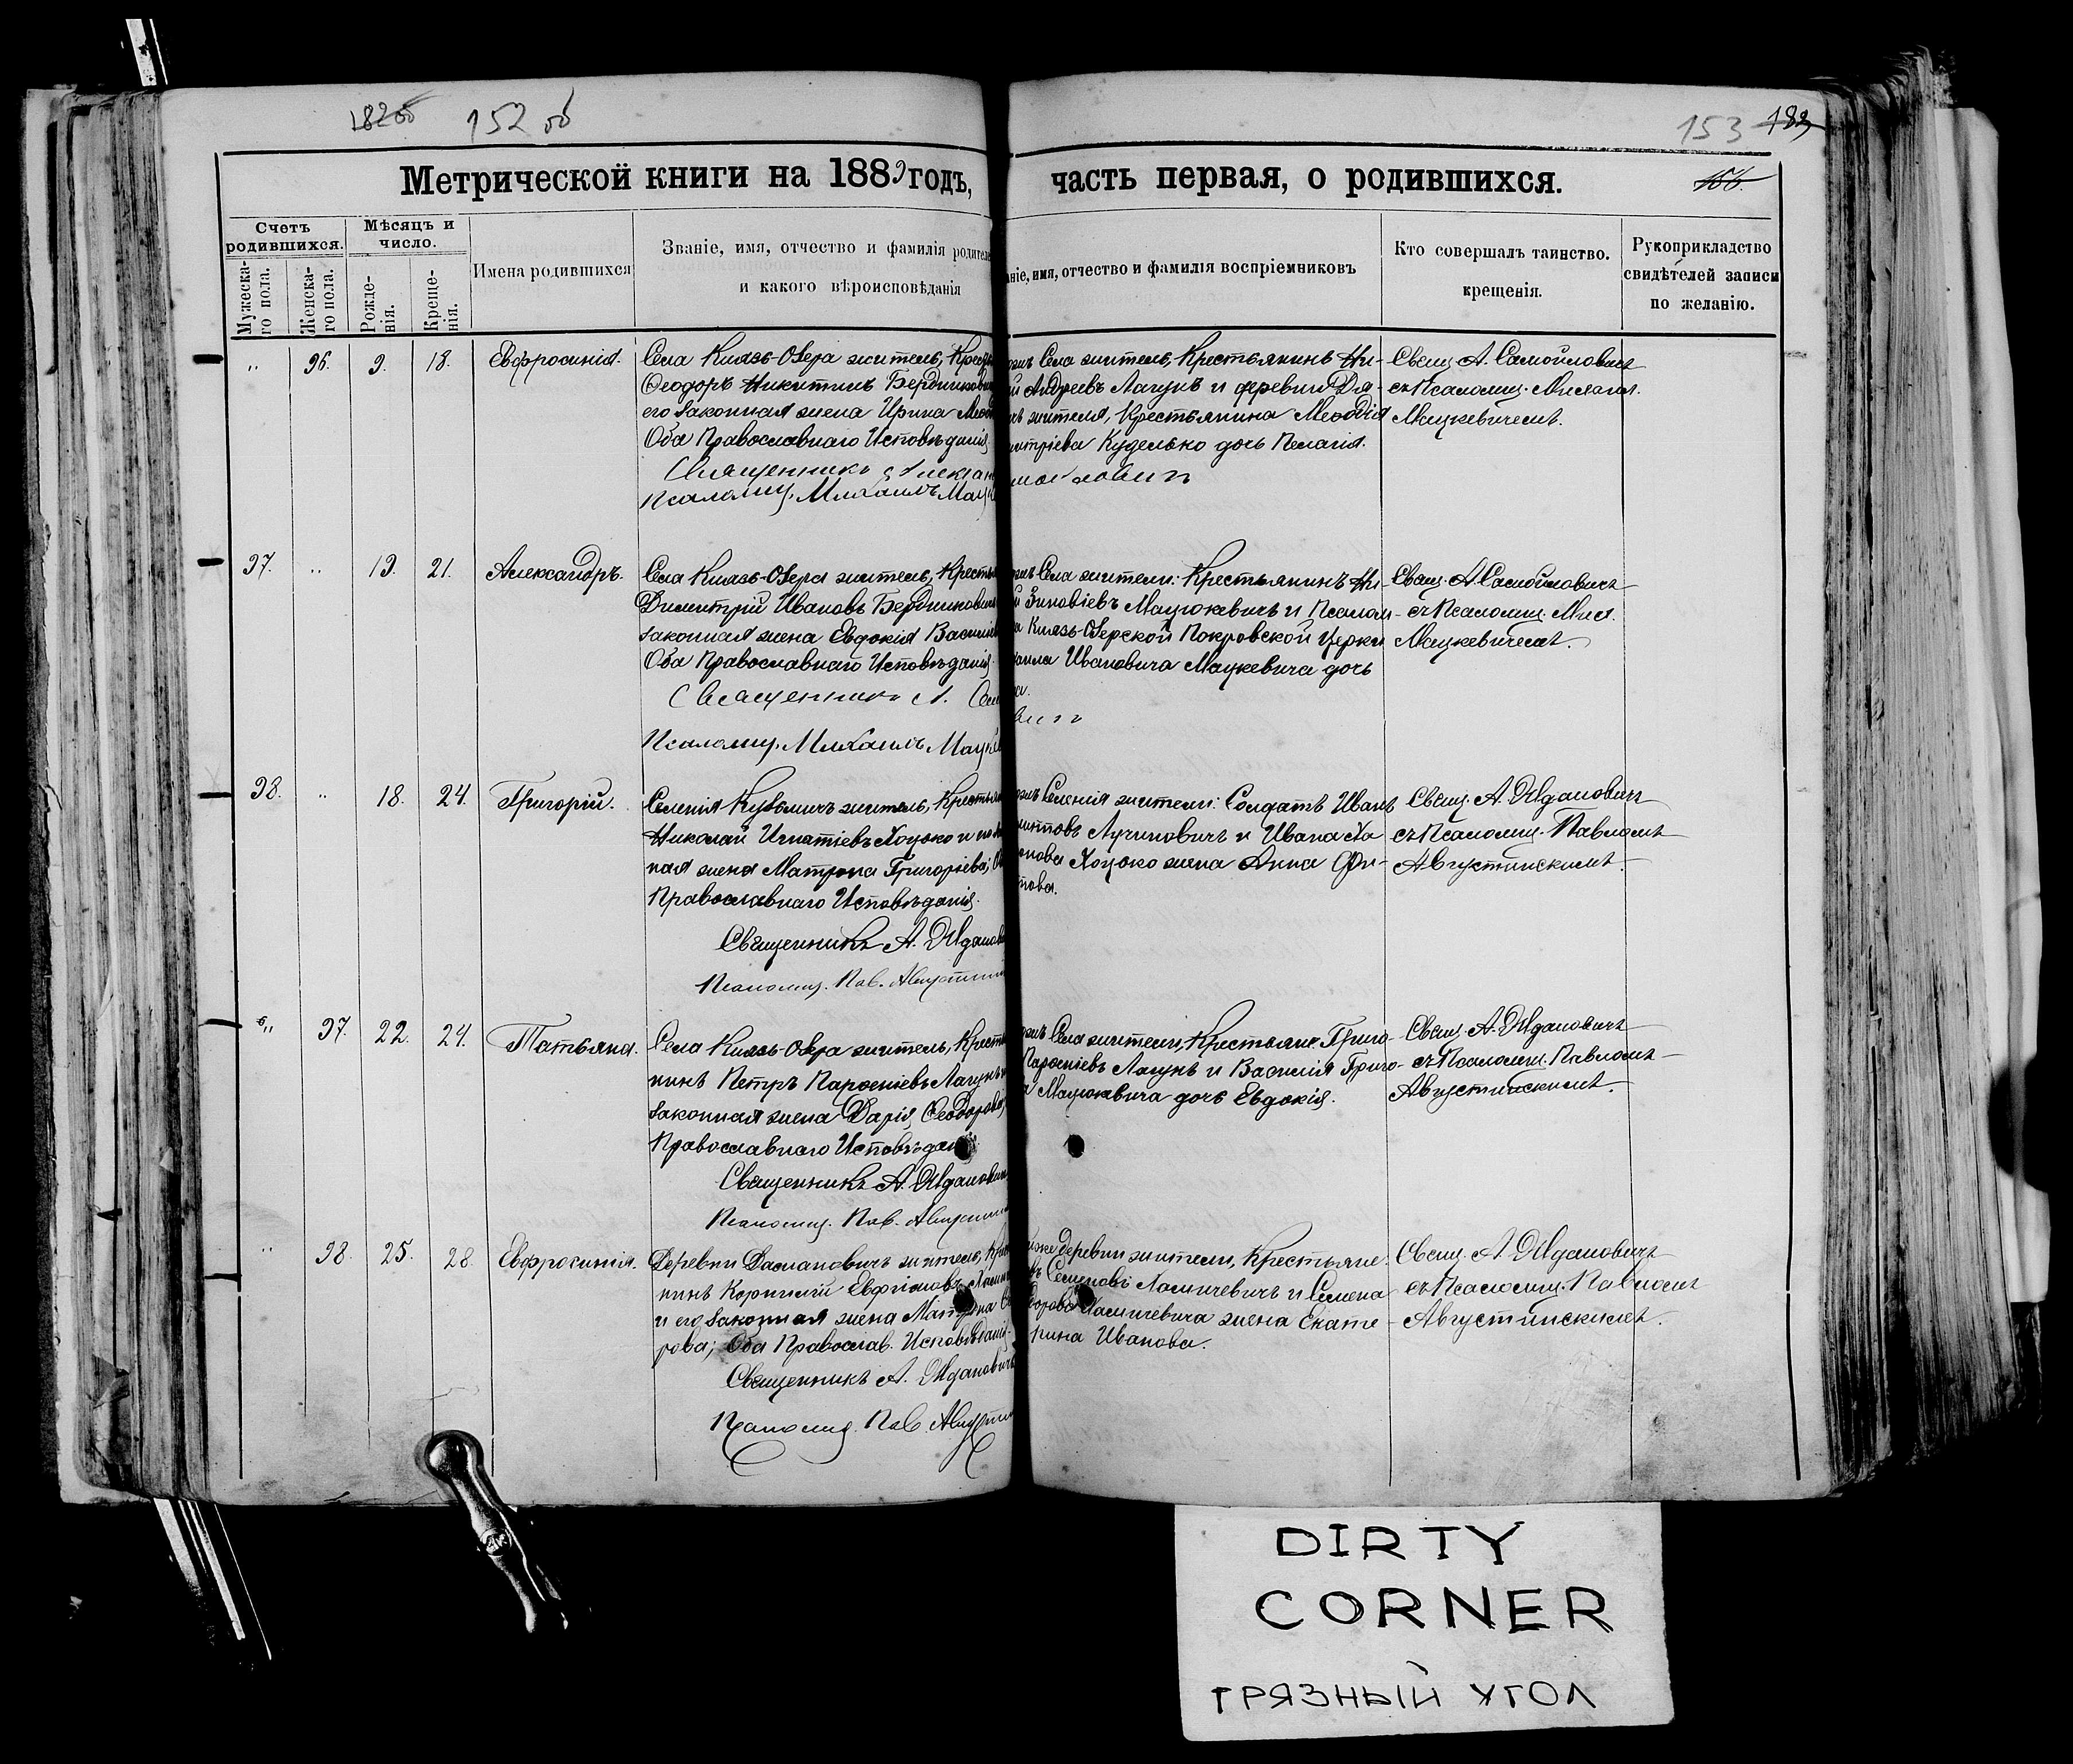 182 об 152 об
153 183
Метрической книги на 1889 годъ, часть первая, о родившихся.
156.
Счетъ родившихся.
Мѣсяцъ и число.
Мужеска-
го пола.
Женска-
го пола.
Рожде-
нія.
Креще-
нія.
Имена родившихся
Званіе, имя, отчество и фамилія родителе
и какого вѣроисповѣданія
ніе, имя, отчество и фамилія воспріемниковъ
Кто совершалъ таинство.
крещенія.
Рукоприкладство
свидѣтелей записи
по желанію.
" 96. 9. 18. Евфросинія.
Села Князь-Озера житель, Крест
Ѳеодоръ Никитинъ Бердникович
его законная жена Ирина Меѳод
Оба Православнаго Исповѣданія
Священникъ Алексан
Псаломщ. Михаилъ Мацк
Села житель, Крестьянинъ Ни-
й Андреевъ Лагунъ и деревни Дя-
житель, Крестьянина Меѳодія
митріева Куделько дочь Пелагія.
мойлович
Свящ. А. Самойловичъ
съ Псаломщ. Михаил.
Мацкевичемъ.
97. " 19. 21. Александръ.
Села Князь-Озера житель, Крестья
Димитрій Ивановъ Бердникович
законная жена Евдокія Василіе
Оба Православнаго Исповѣданія.
Священникъ А. Сам
Псаломщ. Михаилъ Мацке
Села жители: Крестьянинъ Ни-
й Зиновіевъ Мацюкевичъ и Псалом-
а Князь-Озерской Покровской Церкви
хаила Ивановича Мацкевича дочь
а.
вичъ
Свящ. А. Самойловичъ
съ Псаломщ. Мих.
Мацкевичемъ.
98. " 18. 24. Григорій.
Селенія Кузьмичъ житель, Крестьян
Николай Игнатіевъ Хоцько и
ная жена Матрона Григоріева; О
Православнаго Исповѣданія.
Священникъ А. Жданов
Псаломщ. Пав. Августин
Селенія жители: Солдатъ Иванъ
Лучиновичъ и Ивана Ха-
онова Хоцько жена Анна Фи-
това.
Свящ. А. Ждановичъ
съ Псаломщ. Павломъ
Августинскимъ.
" 97. 22. 24. Татьяна.
Села Князь-Озера житель, Крестья
нинъ Петръ Парѳеніевъ Лагунъ и
законная жена Дарія Ѳеодорова
Православнаго Исповѣдан
Священникъ А. Жданович
Псаломщ. Пав. Августин
Села жители, Крестьяне: Григо-
Парѳеніевъ Лагунъ и Василія Григо-
а Мацюкевича дочь Евдокія.
Свящ. А. Ждановичъ
съ Псаломщ. Павломъ
Августинскимъ.
" 98. 25. 28. Евфросинія.
Деревни Дасмановичъ житель, Крес
нинъ Корнилій Евфимовъ Хамич
и его законная жена Матрона Ѳ
рова; Оба Православ. Исповѣданія.
Священникъ А. Ждановичъ
Псаломщ. Пав. Августин
же деревни жители, Крестьяне:
въ Семеновъ Хамичевичъ и Семена
дорова Хамичевича жена Екате-
рина Иванова.
Свящ. А. Ждановичъ
съ Псаломщ. Павломъ
Августинскимъ.
DIRTY
CORNER
ГРЯЗНЫЙ УГОЛ